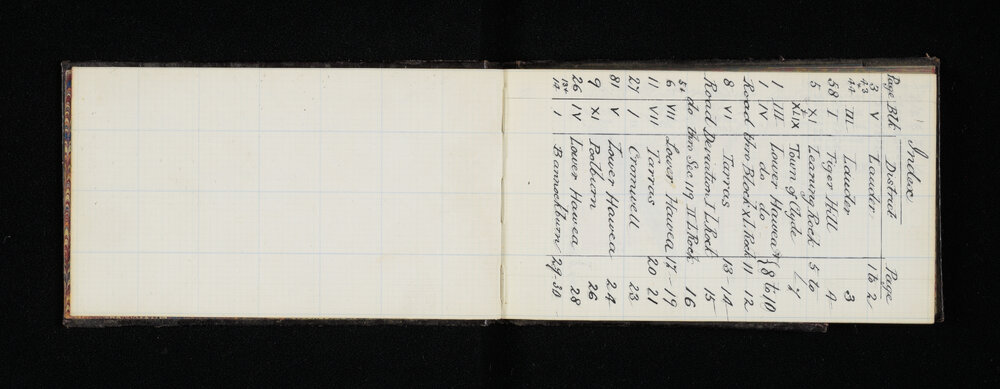 Index
Page Blk District Page
3 V Lauder 1 to 2
43
44 III Lauder 3
58 I Tiger Hill 4
5 XI Leaning Rock 5 to
XLIX Town of Clyde 7
1 III Lower Hawea } 8 to 10
1 IV do do
Road thro Block XI L. Rock 11 12
8 VI Tarras 13-14
Road Deviation I L. Rock 15
do thro Sec 119 II L. Rock 16
54
6 VII Lower Hawea 17-19
11 VIII Tarras 20 21
27 1 Cromwell 23
81 V Lower Hawea 24
9 XI Poolburn 26
26 IV Lower Hawea 28
134
12 1 Bannockburn 29-30